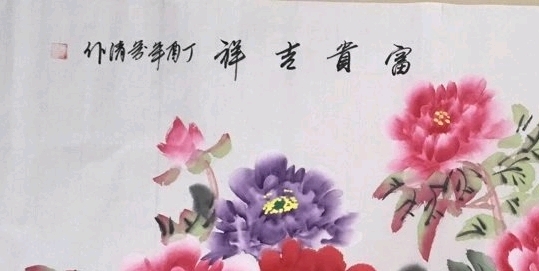 富貴吉祥 丁酉年 清作